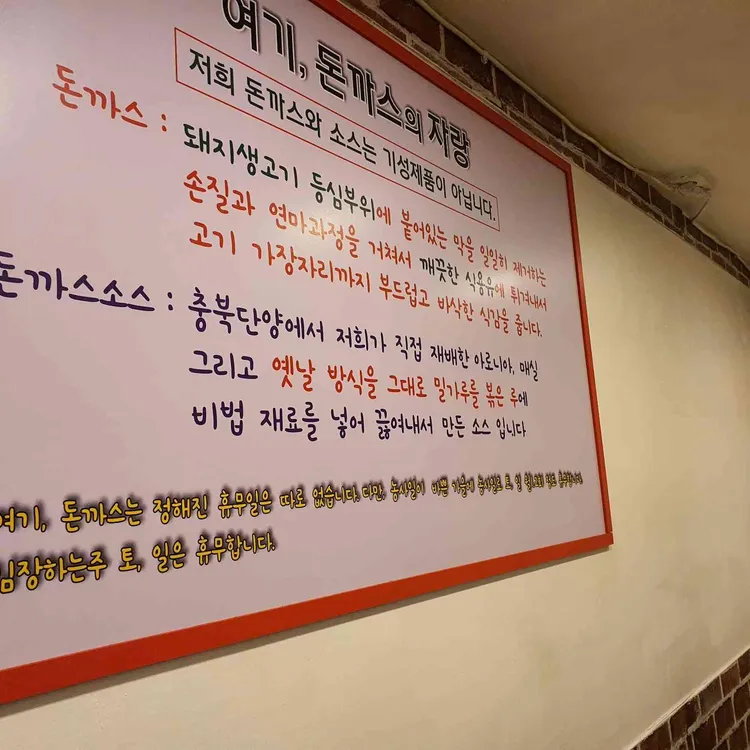 여기, 돈까스의 자랑
저희 돈까스와 소스는 기성제품이 아닙니다.
돈까스 : 돼지생고기 등심부위에 붙어있는 막을 일일히 제거하는
손질과 연마과정을 거쳐서 깨끗한 식용유에 튀겨내서
고기 가장자리까지 부드럽고 바삭한 식감을 줍니다.
돈까스소스 : 충북단양에서 저희가 직접 재배한 아로니아, 매실
그리고 옛날 방식을 그대로 밀가루를 볶은 루에
비법 재료를 넣어 끓여내서 만든 소스 입니다
여기, 돈까스는 정해진 휴무일은 따로 없습니다. 다만, 농사일이 바쁜 가을에 농사일로 토, 일 휴무합니다.
김장하는주 토, 일은 휴무합니다.